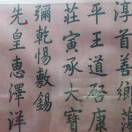 淳首善鄉
平王道启康
莊寅承大寶
彌乾惕敷錫
先皇惠澤洋